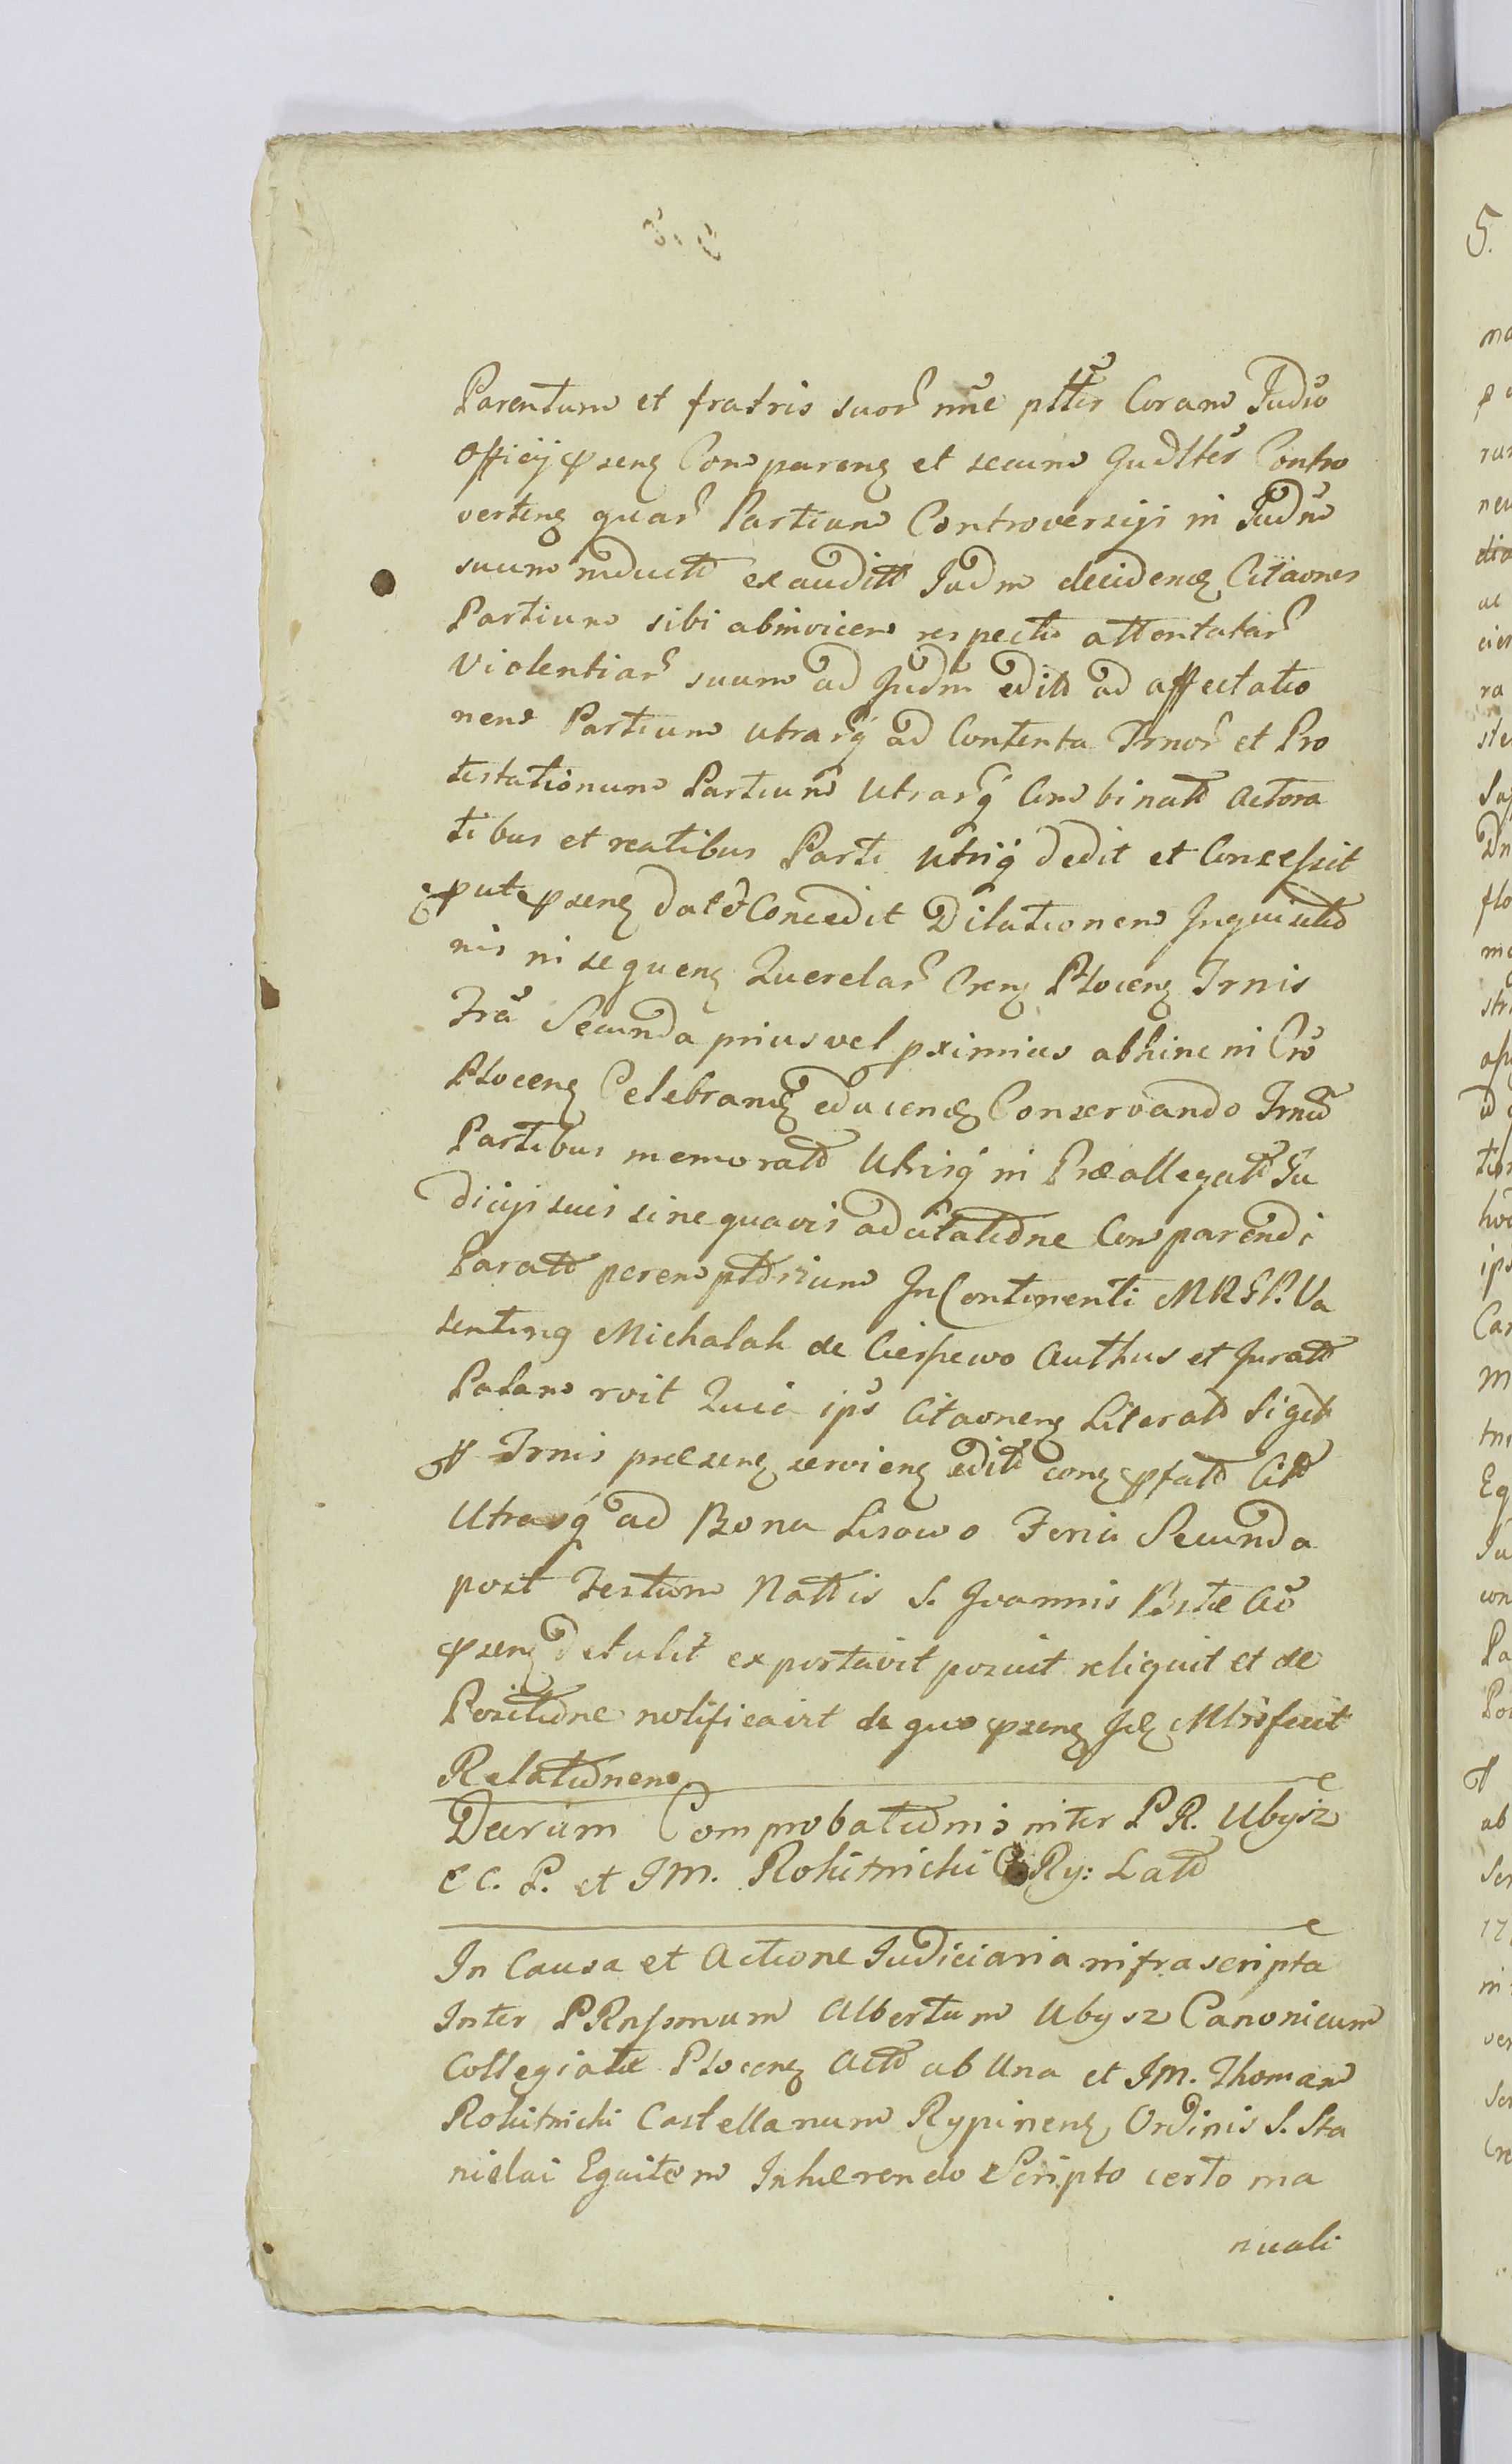 Parentum et fratris suor. nne ptter Coram Judio
Officij psenz Comparenz et secum Judlter Contro
vertenz quar. Partium Controversijs in Judm
suum inductis exauditis Judm decidendz Citaones
Partium sibi abinvicem respectu attentatar.
Violentiar. suum ad Judm editis ad affectatio
nem Partium utrarq ad Contenta Trnor. et Pro
testationum Partium Utrarq Combinatis Actora
tibus et reatibus Parti Utriq dedit et Concessit
put psenz dat & Concedit Dilationem Inquisitio
nis in sequenz Querelar. Crenz Plocenz Trnis
Fra Secunda prius vel pximius abhinc in Cro
Plocenz Celebrandz educendz Conservando Trnum
Partibus memoratis Utrisq in Præallegatis Ju
dicijs suis sine quavis adcitatione Comparendi
Paratis peremptorium In Continenti MRGP. Va
lentinq Michalak de Cieszewo Authus et Juratus
Palam rvit Quia ips Citaonenz Literatis Sigil
Trnis præsenz servienz editis conz pfatis Cit
Utrasq ad Bona Lisowo Feria Secunda
post Festum Nattis S. Joannis Bstæ Ao
psenz detulit exportavit posuit reliquit et de
Positione notificavit de quo psenz Jdz Mtrisfecit
Relationem
Decrum Comprobationis inter P R. Ubysz
C C. P. et JM. Rokitnicki C. Ry: Lat
In Causa et Actione Judiciaria infrascripta
Inter PRnssmum Albertum Ubysz Canonicum
Collegiatæ Plocenz Act ab Una et JM. Thomam
Rokitnicki Castellanum Rypinenz Ordinis S. Sta
nislai Equitem Inhærendo Scripto certo ma
nuali